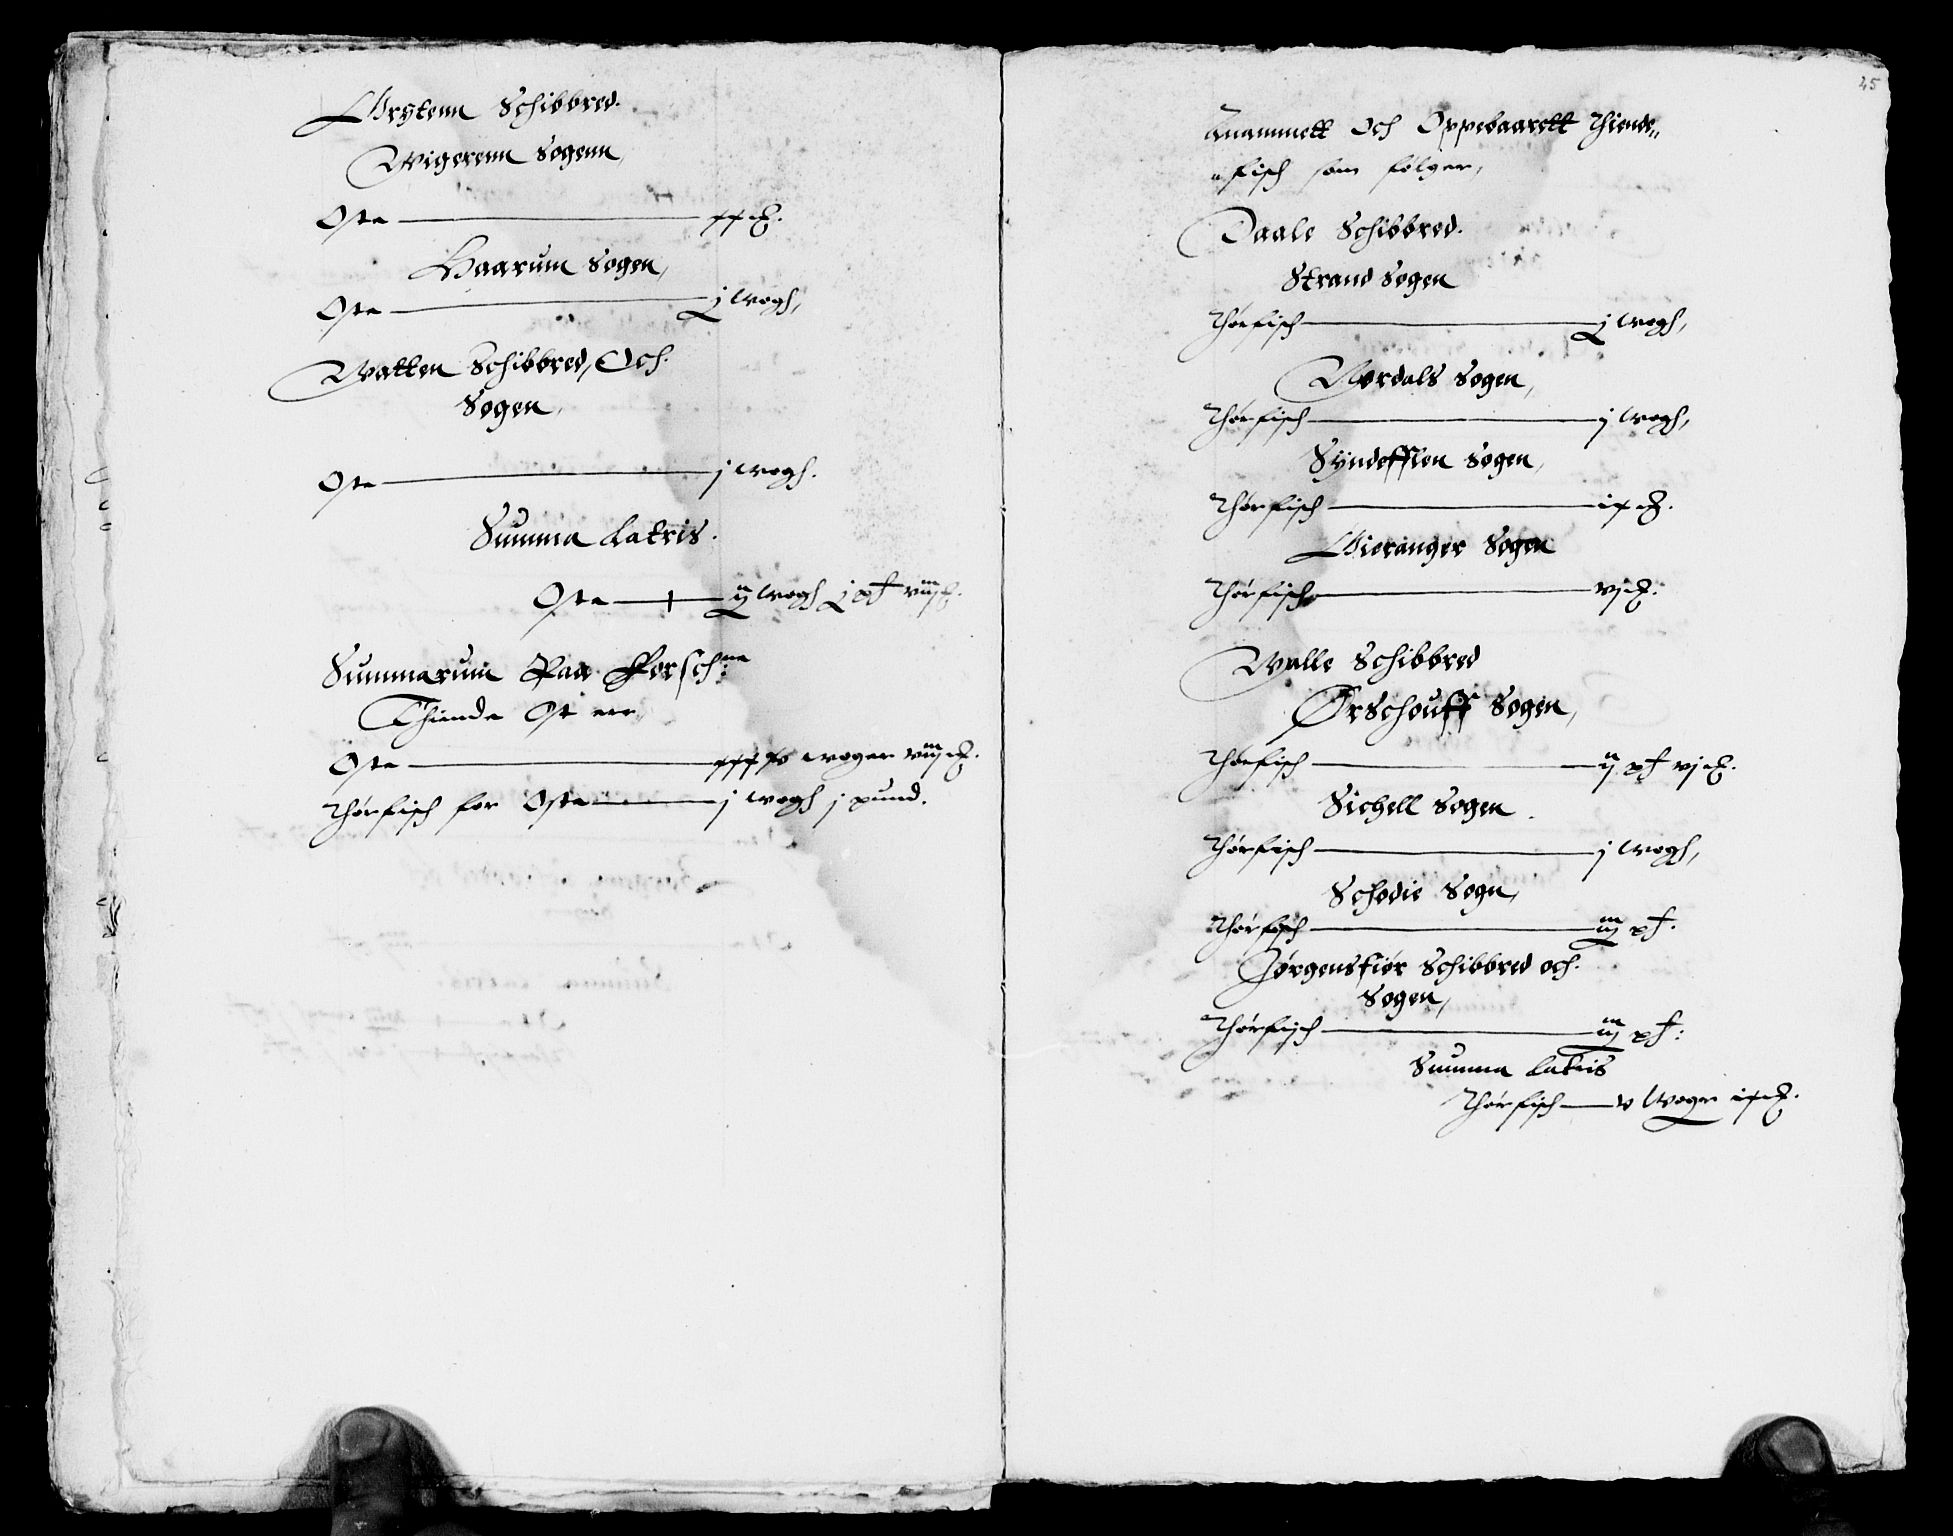 Grytenn Schibbred.
Wigerenn Sogenn,
Oste xx ℔.
Haarum Sogen,
Oste j wogh,
Watten Schibbred, Och
Sogen,
Oste j wogh.
Summa Latris.
Oste ij wogh j pd viij ℔.
Summarum Paa Forschne
Thiende Ost err,
Oste woger viij ℔.
Thørfisch for Oste j wogh j pund.
45
Annammett Och Oppebaarett Thiende„
„fisch som følger,
Daale Schibbred.
Strand Sogen
Thørfisch j wogh,
Nordals Sogen,
Thørfisch j wogh,
Syndefflen Sogen,
Thørfisch ix ℔.
Gieranger Sogen
Thørfisch vj ℔:
Walle Schibbred
Ørschouff Sogen,
Thørfisch ij pd vj ℔.
Sichell Sogen.
Thørfisch j wogh,
Schodie Sogn,
Thørfisch iij pd.
Jørgensfiør Schibbred och.
Sogen,
Thørfisch iij pd:
Summa Latris
Thørfisch v Woger ix ℔.